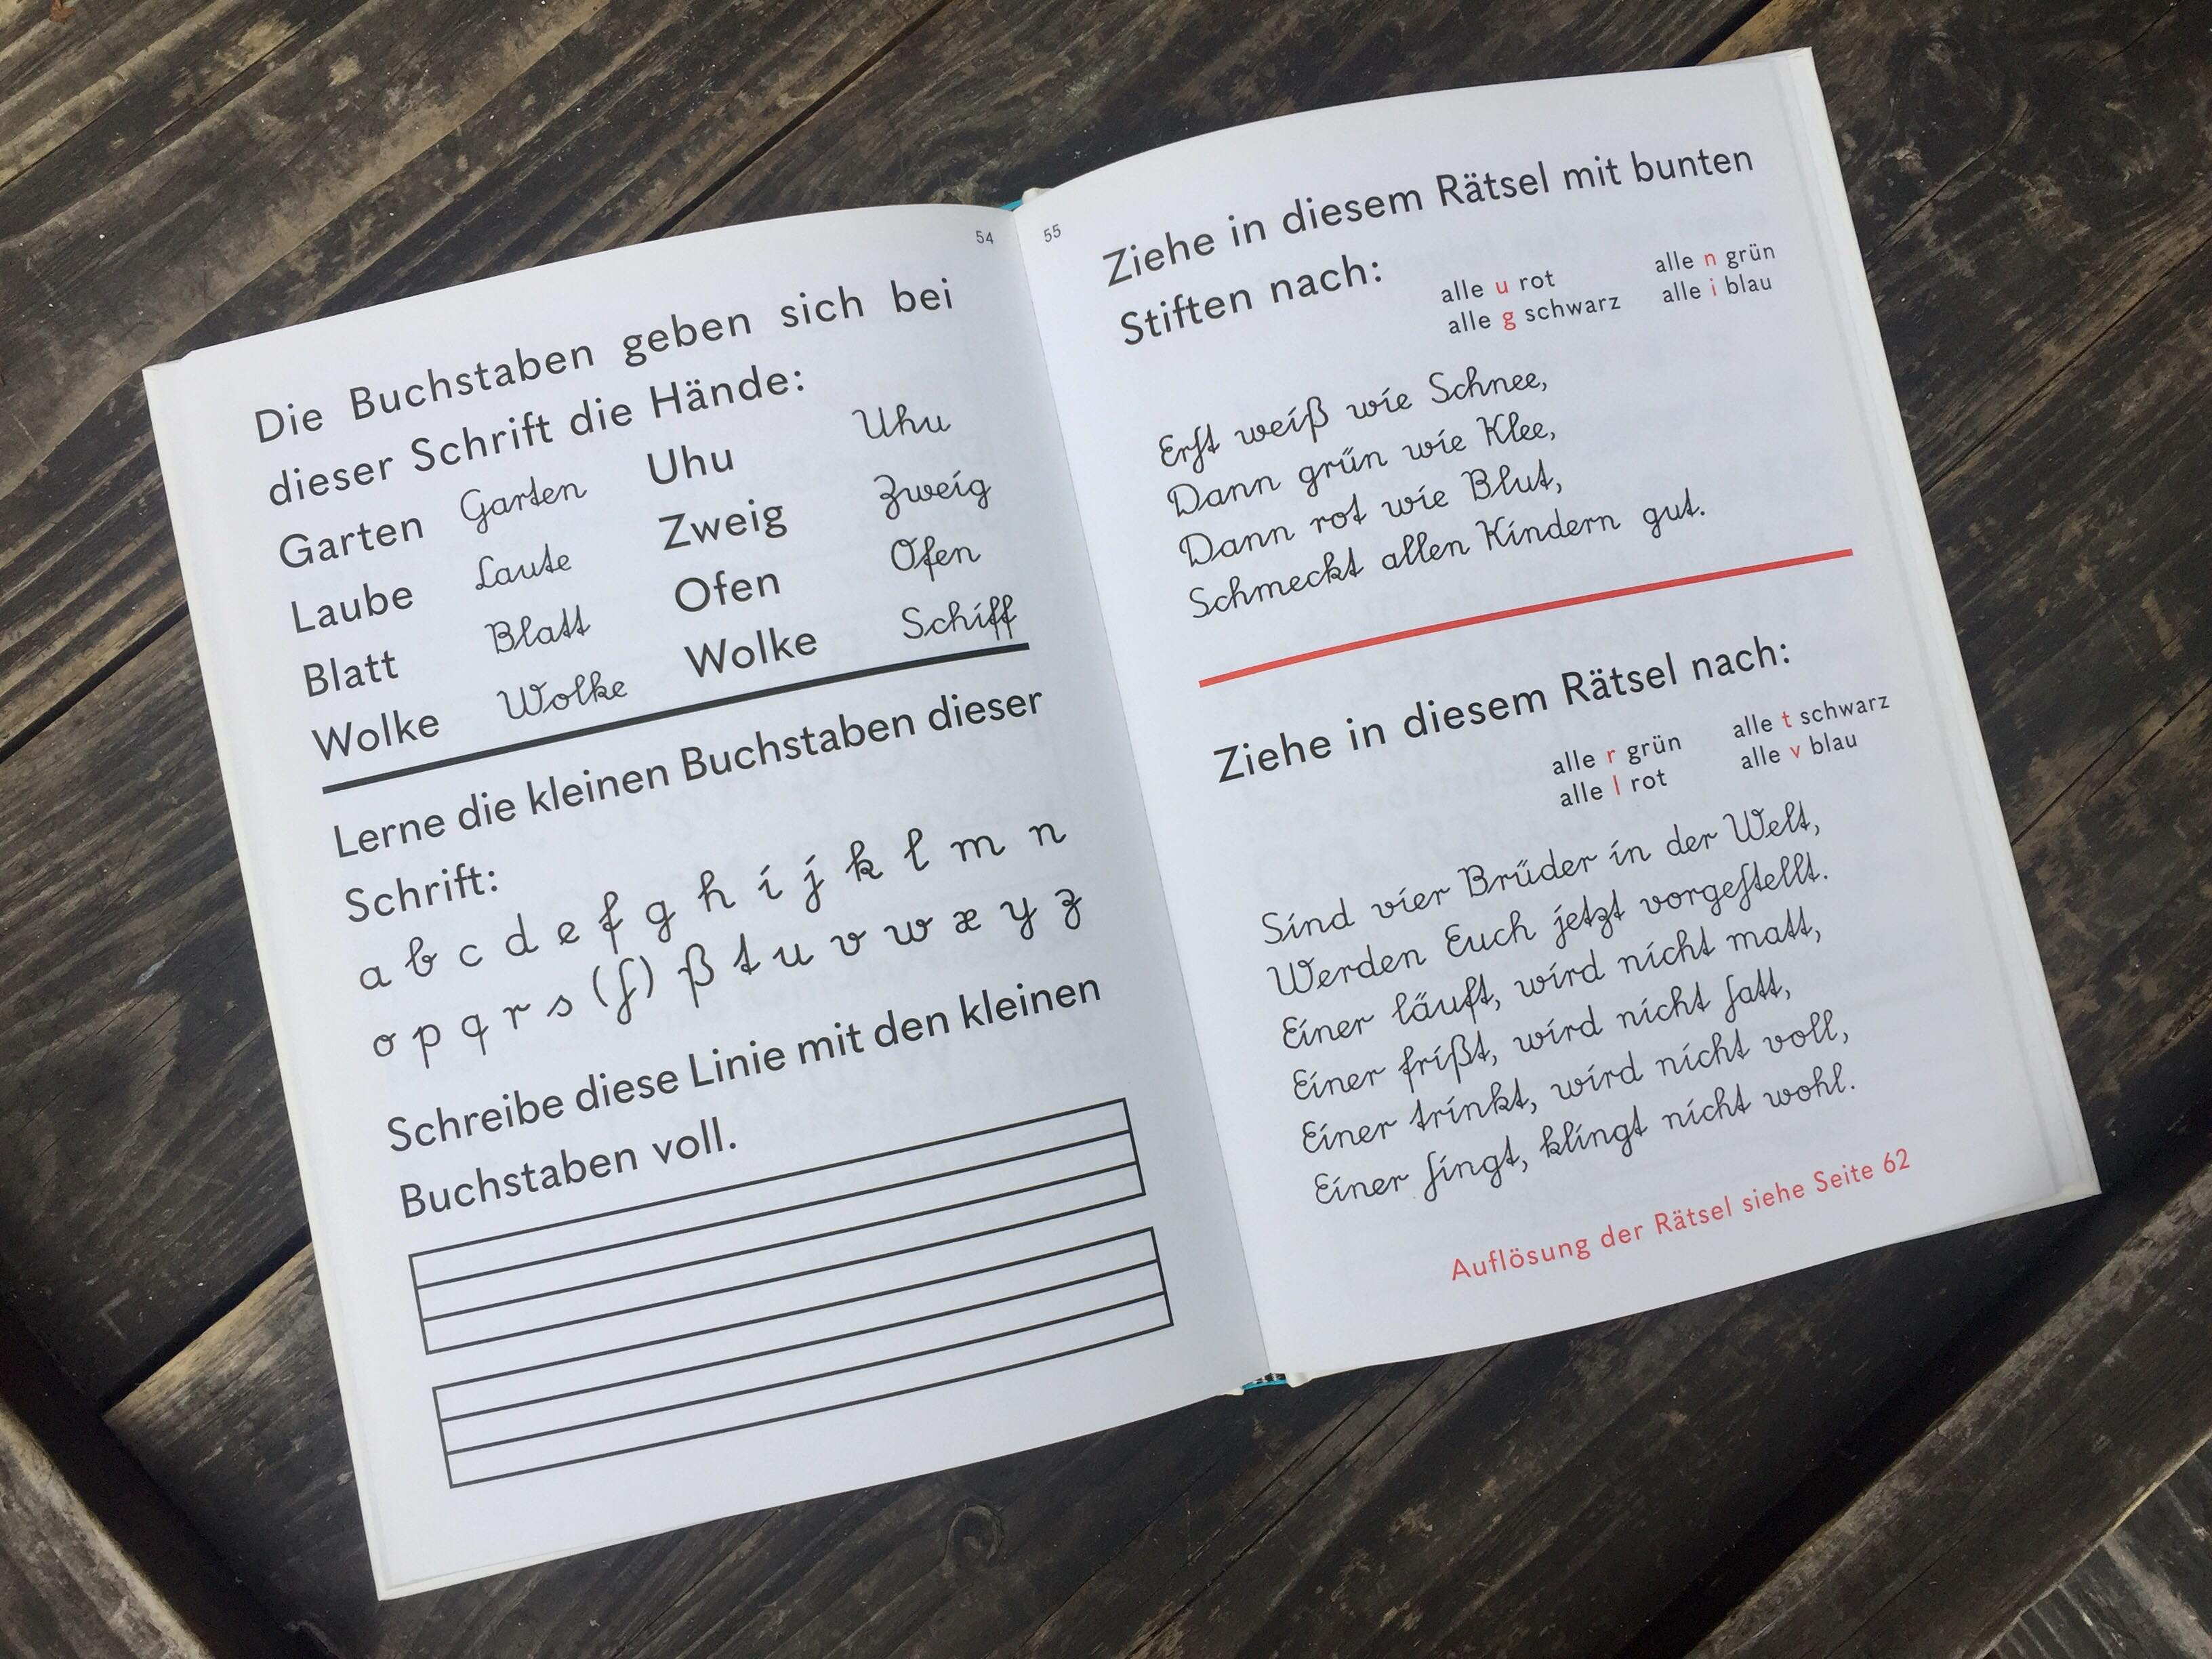 54
Die Buchstaben geben sich bei
dieser Schrift die Hände:
Garten Garten Uhu Uhu
Laube Laute Zweig Zweig
Blatt Blatt Ofen Ofen
Wolke Wolke Wolke Schiff
Lerne die kleinen Buchstaben dieser
Schrift:
a b c d e f g h i j k l m n
o p q r s (ſ) ß t u v w x y z
Schreibe diese Linie mit den kleinen
Buchstaben voll.
55
Ziehe in diesem Rätsel mit bunten
Stiften nach:
alle u rot alle n grün
alle g schwarz alle i blau
Erſt weiß wie Schnee,
Dann grün wie Klee,
Dann rot wie Blut,
Schmeckt allen Kindern gut.
Ziehe in diesem Rätsel nach:
alle r grün alle t schwarz
alle l rot alle v blau
Sind vier Brüder in der Welt,
Werden Euch jetzt vorgeſtellt.
Einer läuft, wird nicht matt,
Einer frißt, wird nicht ſatt,
Einer trinkt, wird nicht voll,
Einer ſingt, klingt nicht wohl.
Auflösung der Rätsel siehe Seite 62